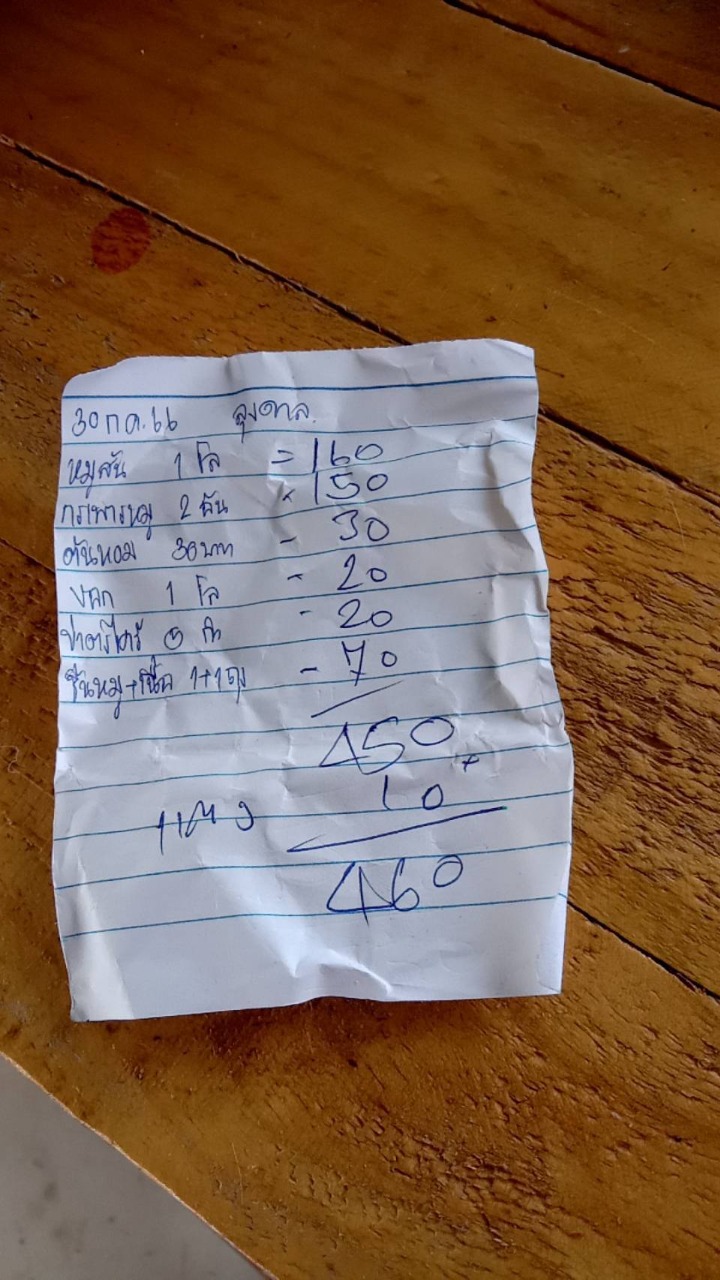 30 ก.ค. 66 ลุงตาล.
หมูสัน 1 โล = 160
กระเพาะหมู 2 อัน - 150
ต้นหอม 30 บาท - 30
ผัก 1 โล - 20
ข่าตะไคร้ กำ - 20
ชิ้นหมู+เนื้อ 1+1 ถุง - 70
450
+
แตง 10
460